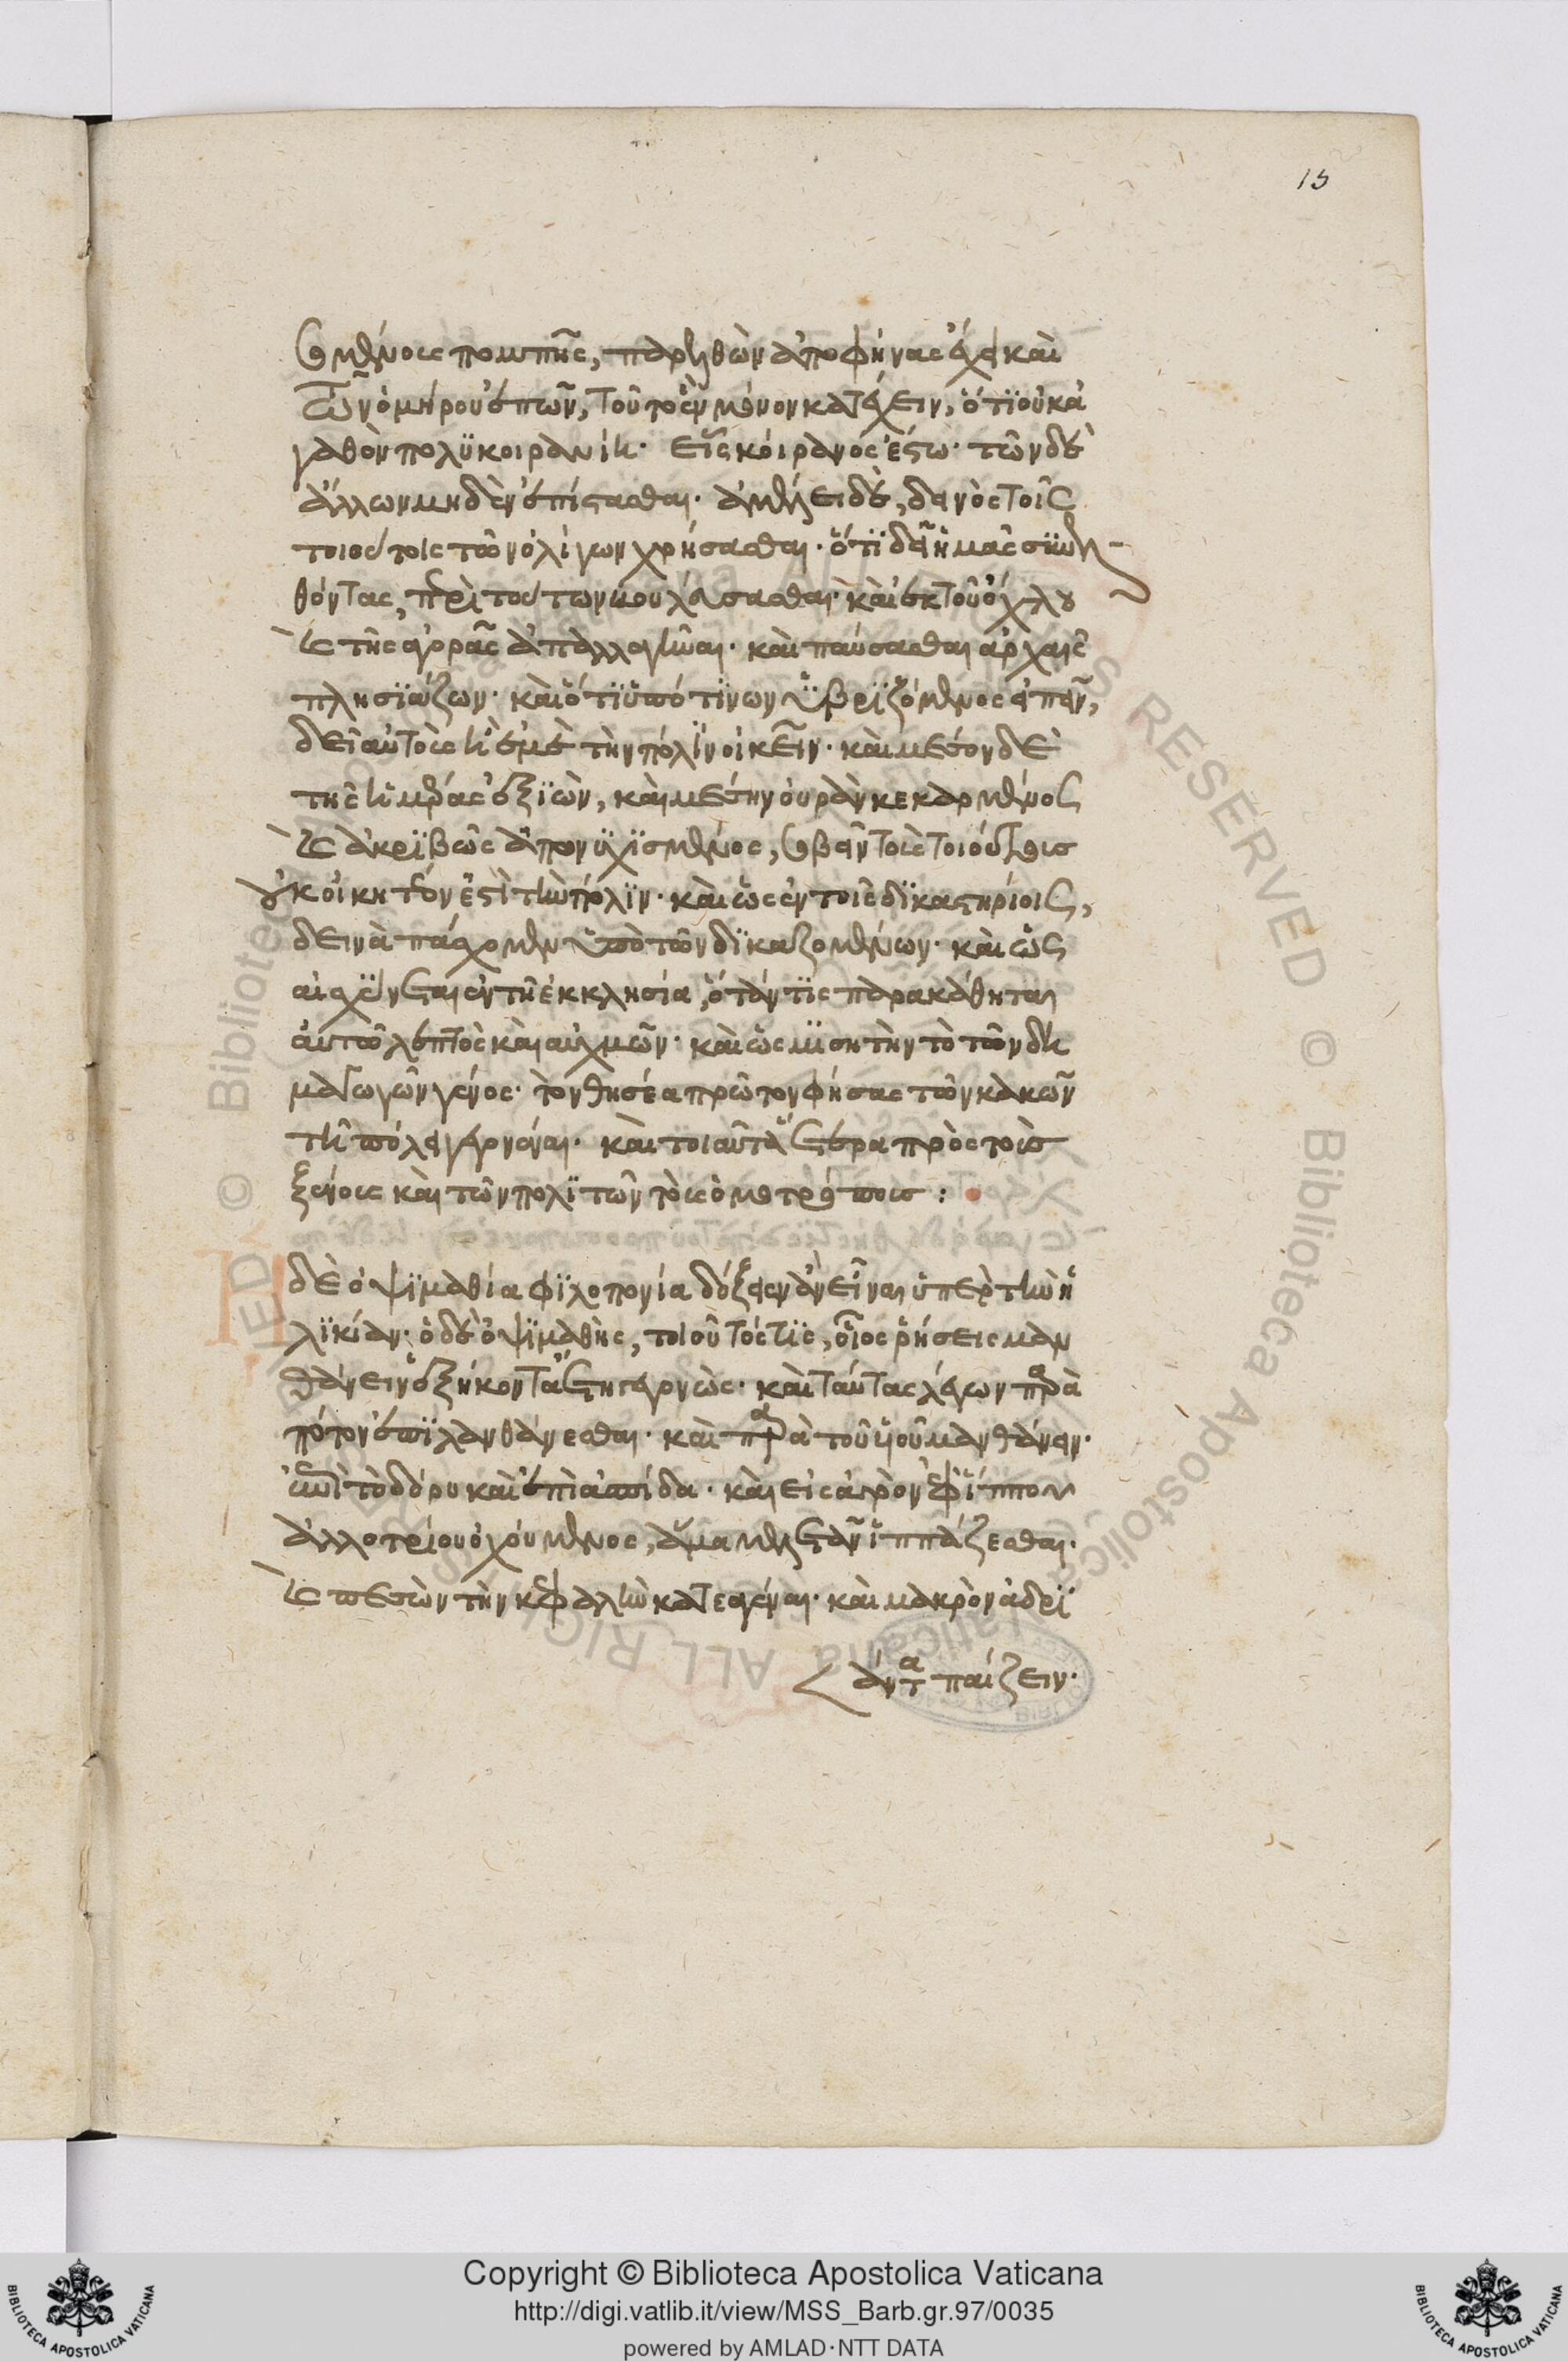 15
σομένοις πομπῆς, παρελθὼν ἀποφήνας ἔχει καὶ
τῶν ὁμήρου ἐπῶν, τοῦτο ἓν μόνον κατέχειν, ὅτι οὐκ ἀ
γαθὸν πολυκοιρανίη· εἷς κοίρανος ἔστω· τῶν δὲ
ἄλλων μηδὲν ἐπίστασθαι· ἀμέλει δὲ, δεινὸς τοῖς
τοιούτοις τῶν ὀλίγων χρήσασθαι· ὅτι δεῖ ἡμᾶς συνελ
θόντας, περὶ τούτων βουλεύσασθαι· καὶ ἐκ τοῦ ὄχλου
καὶ τῆς ἀγορᾶς ἀπαλλαγῆναι· καὶ παύσασθαι ἀρχαῖς
πλησιάζων· καὶ ὅτι ὑπό τινων ὑβριζόμενος εἰπεῖν,
δεῖ αὐτοὺς ἢ ἐμὲ τὴν πόλιν οἰκεῖν· καὶ μέσον δὲ
τῆς ἡμέρας ἐξιὼν, καὶ μέσην οὐρὰν κεκαρμένος
καὶ ἀκριβῶς ἀπωνυχισμένος, σοβεῖν τοὺς τοιούτους
οὐκ οἰκητόν ἐστι τὴν πόλιν· καὶ ὡς ἐν τοῖς δικαστηρίοις,
δεινὰ πάσχομεν ὑπὸ τῶν δικαζομένων· καὶ ὡς
αἰσχύνεται ἐν τῇ ἐκκλησία, ὅταν τις παρακάθηται
αὐτῷ λεπτὸς καὶ αὐχμῶν· καὶ ὡς μισητὴν τὸ τῶν δη
μαγωγῶν γένος· τὸν θησέα πρῶτον φήσας τῶν κακῶν
τῇ πόλει γεγονέναι· καὶ τοιαῦτα ἕτερα πρὸς τοὺς
ξένοις καὶ τῶν πολιτῶν τοῖς ὁμοτρόποις :
Ἡ δὲ ὀψιμαθία φιλοπονία δόξειεν ἂν εἶναι ὑπὲρ τὴν ἡ
λικίαν· ὁ δὲ ὀψιμαθὴς, τοιοῦτός τις, οἷος ῥήσεις μαν
θάνειν ἑξήκοντα ἔτη γεγονὼς· καὶ ταύτας λέγων παρὰ
πότον ἐπιλανθάνεσθαι· καὶ παρὰ τοῦ υἱοῦ μανθάνειν·
ἐπὶ τὸ δόρυ καὶ ἐπὶ ἀσπίδα· καὶ εἰς ἀγρὸν ἐφ' ἵππον
ἀλλοτρίου ὀχούμενος, ἅμα μελετᾶν ἱππάζεσθαι·
καὶ πεσὼν τὴν κεφαλὴν κατεαγέναι· καὶ μακρὸν ἀδρι
άντα παίζειν·
Copyright © Biblioteca Apostolica Vaticana
http://digi.vatlib.it/view/MSS_Barb.gr.97/0035
powered by AMLAD·NTT DATA